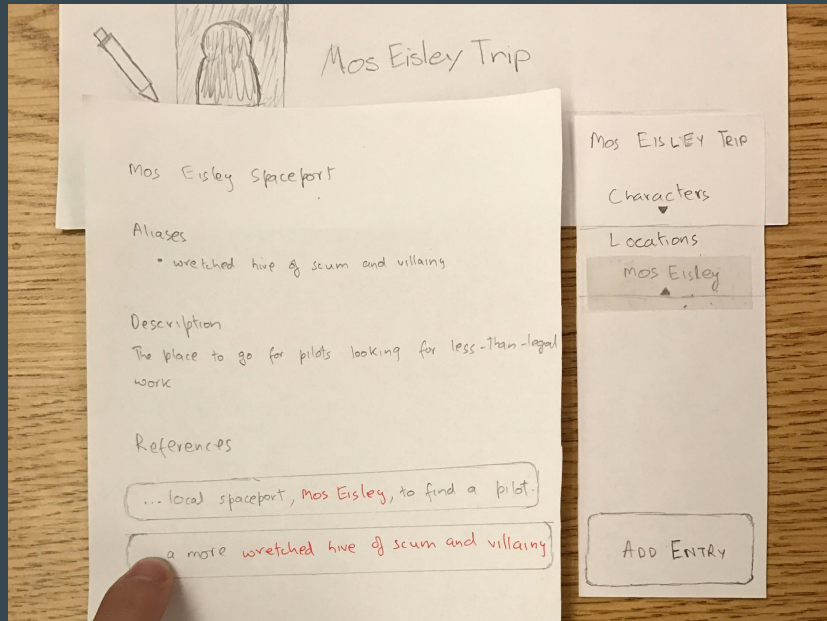 Mos Eisley Trip
Mos Eisley Spaceport
Aliases
• wretched hive of scum and villainy
Description
The place to go for pilots looking for less-than-legal
work
References
... local spaceport, Mos Eisley, to find a pilot.
a more wretched hive of scum and villainy
MOS EISLEY TRIP
Characters
Locations
Mos Eisley
ADD ENTRY